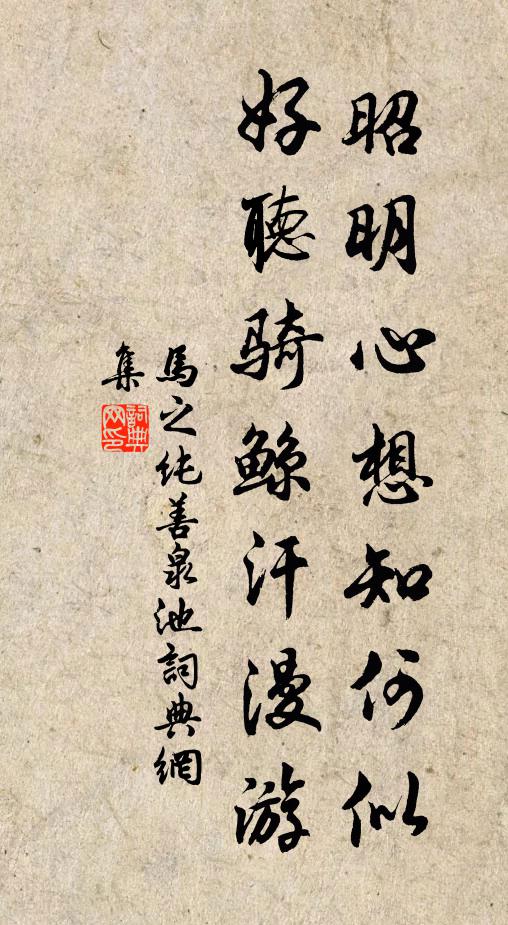 昭明心想知何似
好聽骑鲸汗漫游
馬之纯善泉池詞典網
集
詞典网印